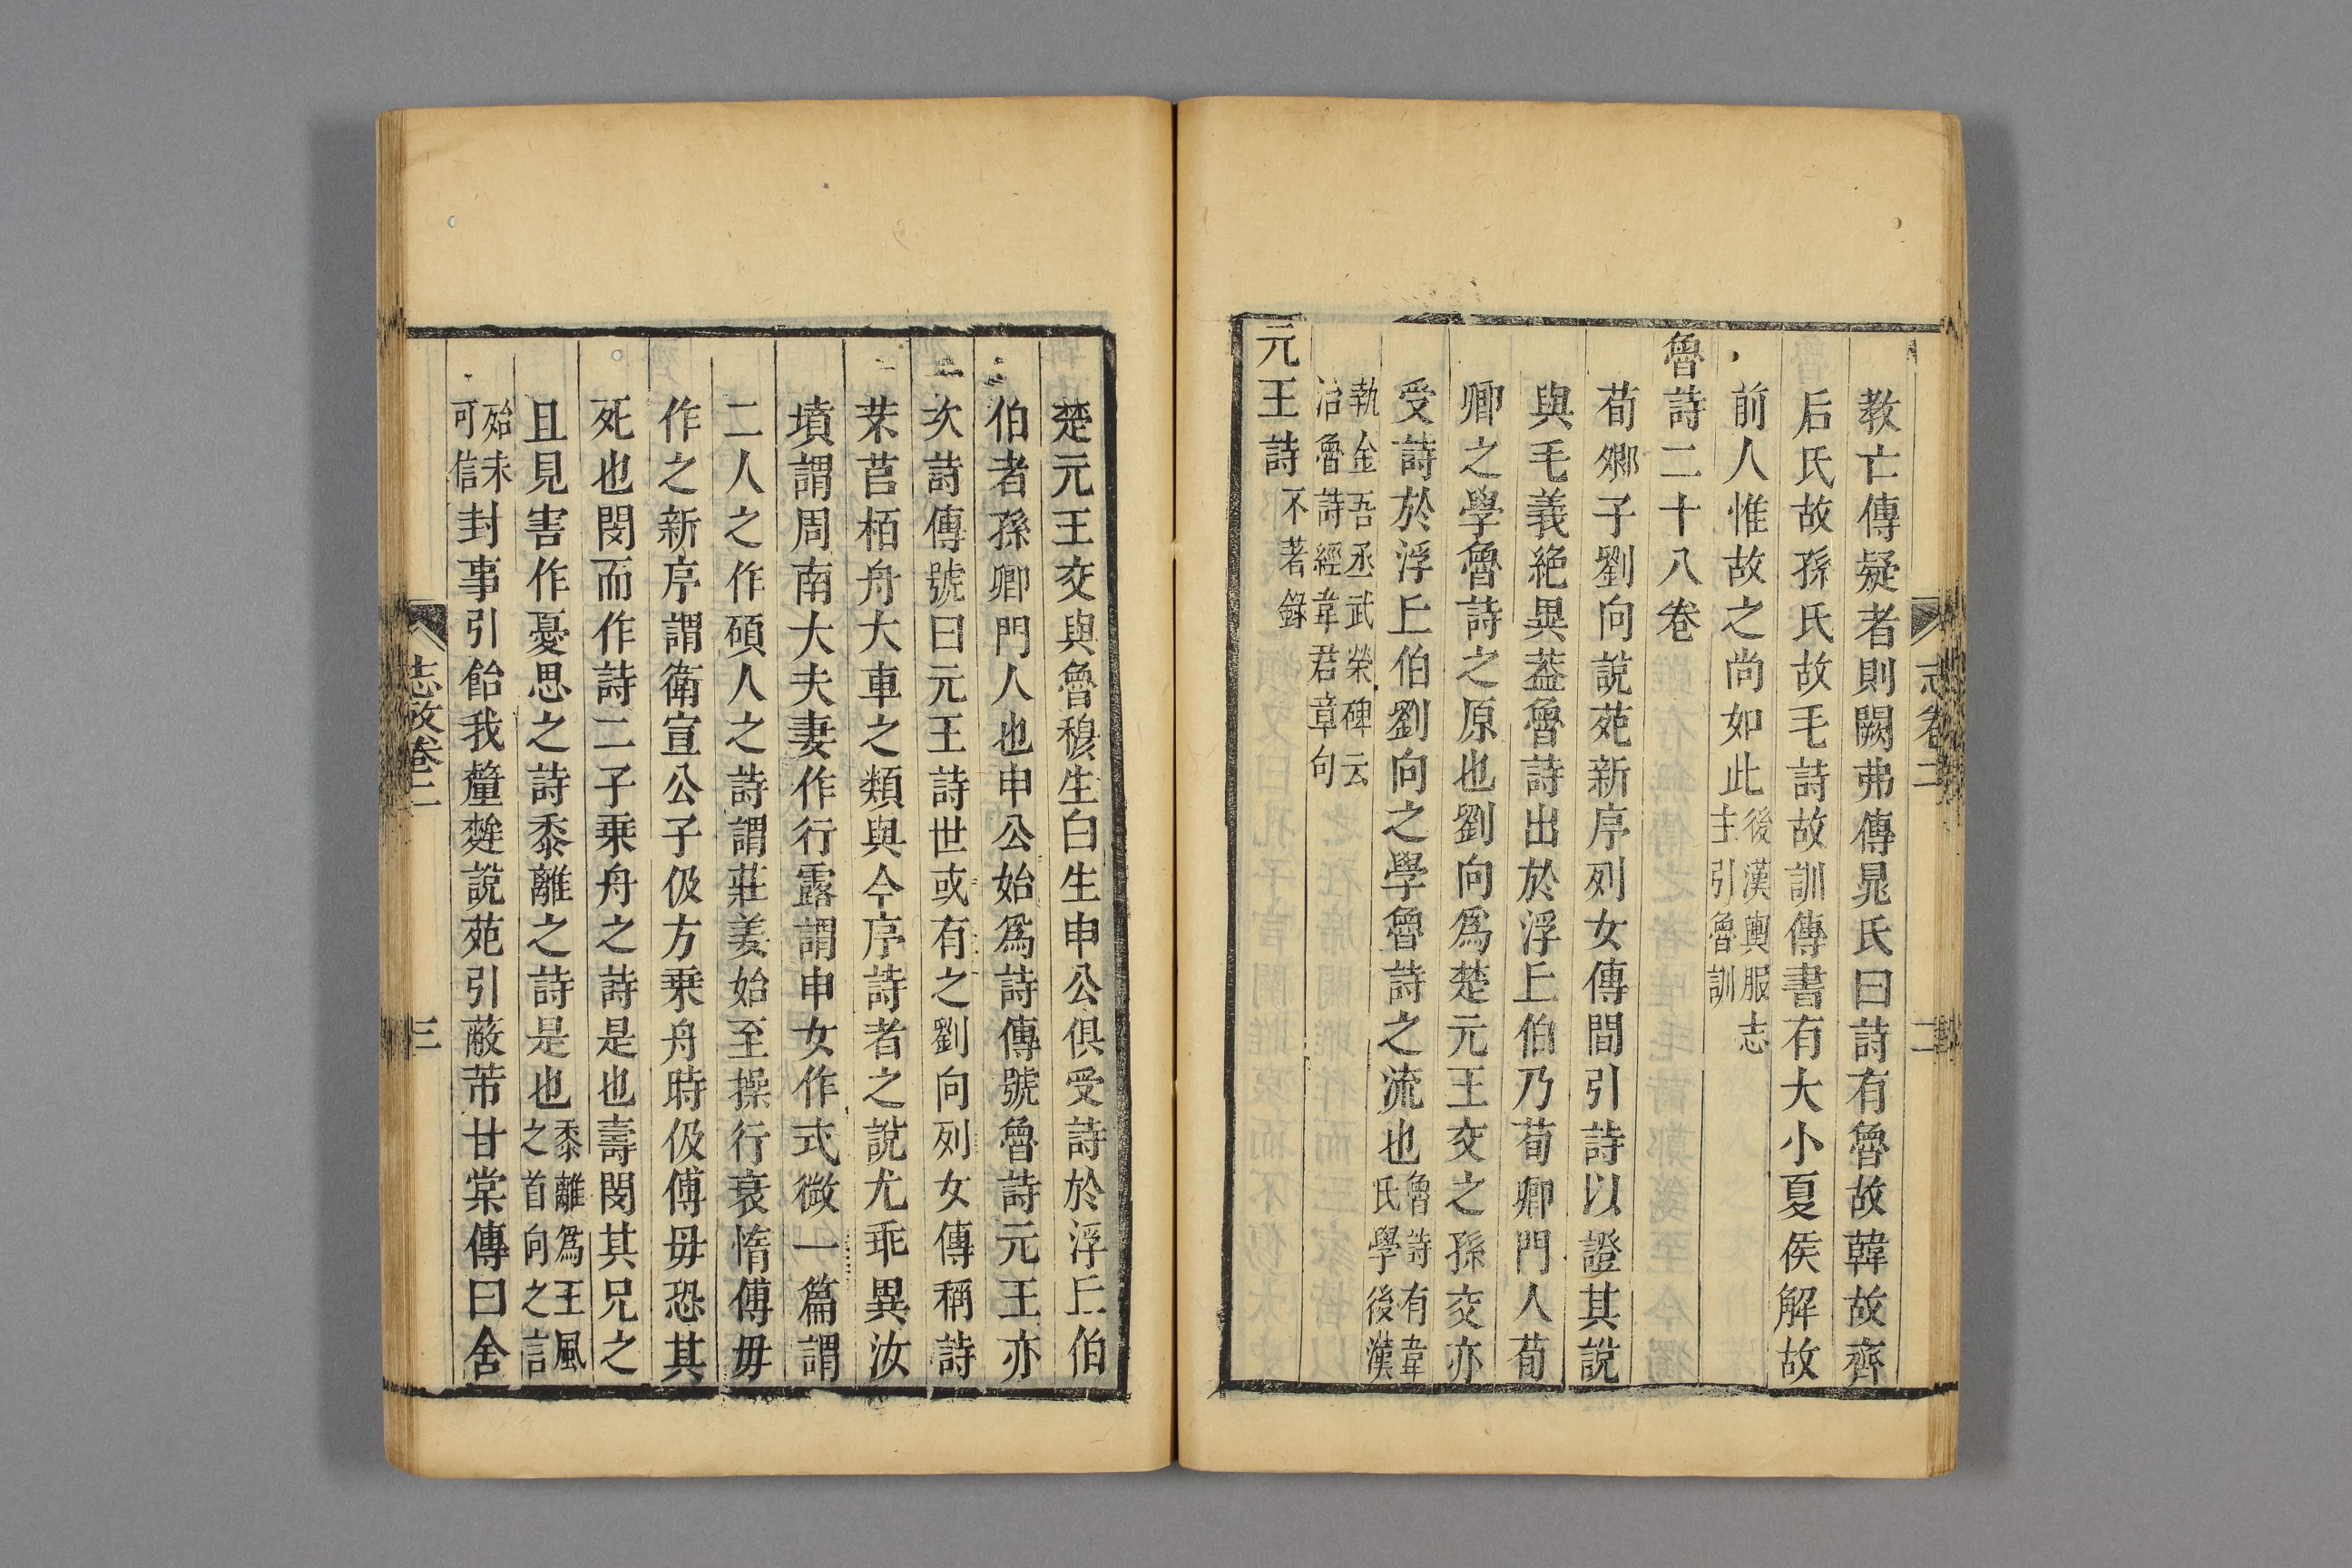 教亡傳疑者則闕弗傳晁氏曰詩有魯故韓故齊
后氏故孫氏故毛詩故訓傳書有大小夏侯解故
前人惟故之尚如此後漢輿服志主引魯訓
魯詩二十八卷
荀卿子劉向說苑新序列女傳間引詩以證其說
與毛義絶異葢魯詩出於浮丘伯乃荀卿門人荀
卿之學魯詩之原也劉向爲楚元王交之孫交亦
受詩於浮丘伯劉向之學魯詩之流也魯詩有韋氏學後漢
執金吾丞武榮碑云治魯詩經韋君章句
元王詩不著錄
楚元王交與魯穆生白生申公俱受詩於浮丘伯
伯者孫卿門人也申公始爲詩傳號魯詩元王亦
次詩傳號曰元王詩世或有之劉向列女傳稱詩
芣苢栢舟大車之類與今序詩者之說尤乖異汝
墳謂周南大夫妻作行露謂申女作式微一篇謂
二人之作碩人之詩謂莊姜始至操行衰惰傅毋
作之新序謂衛宣公子伋方乗舟時伋傅毋恐其
死也閔而作詩二子乗舟之詩是也壽閔其兄之
且見害作憂思之詩黍離之詩是也黍離爲王風之首向之言
殆未可信封事引飴我釐麰說苑引蔽芾甘棠傳曰舍
志攷卷二
三